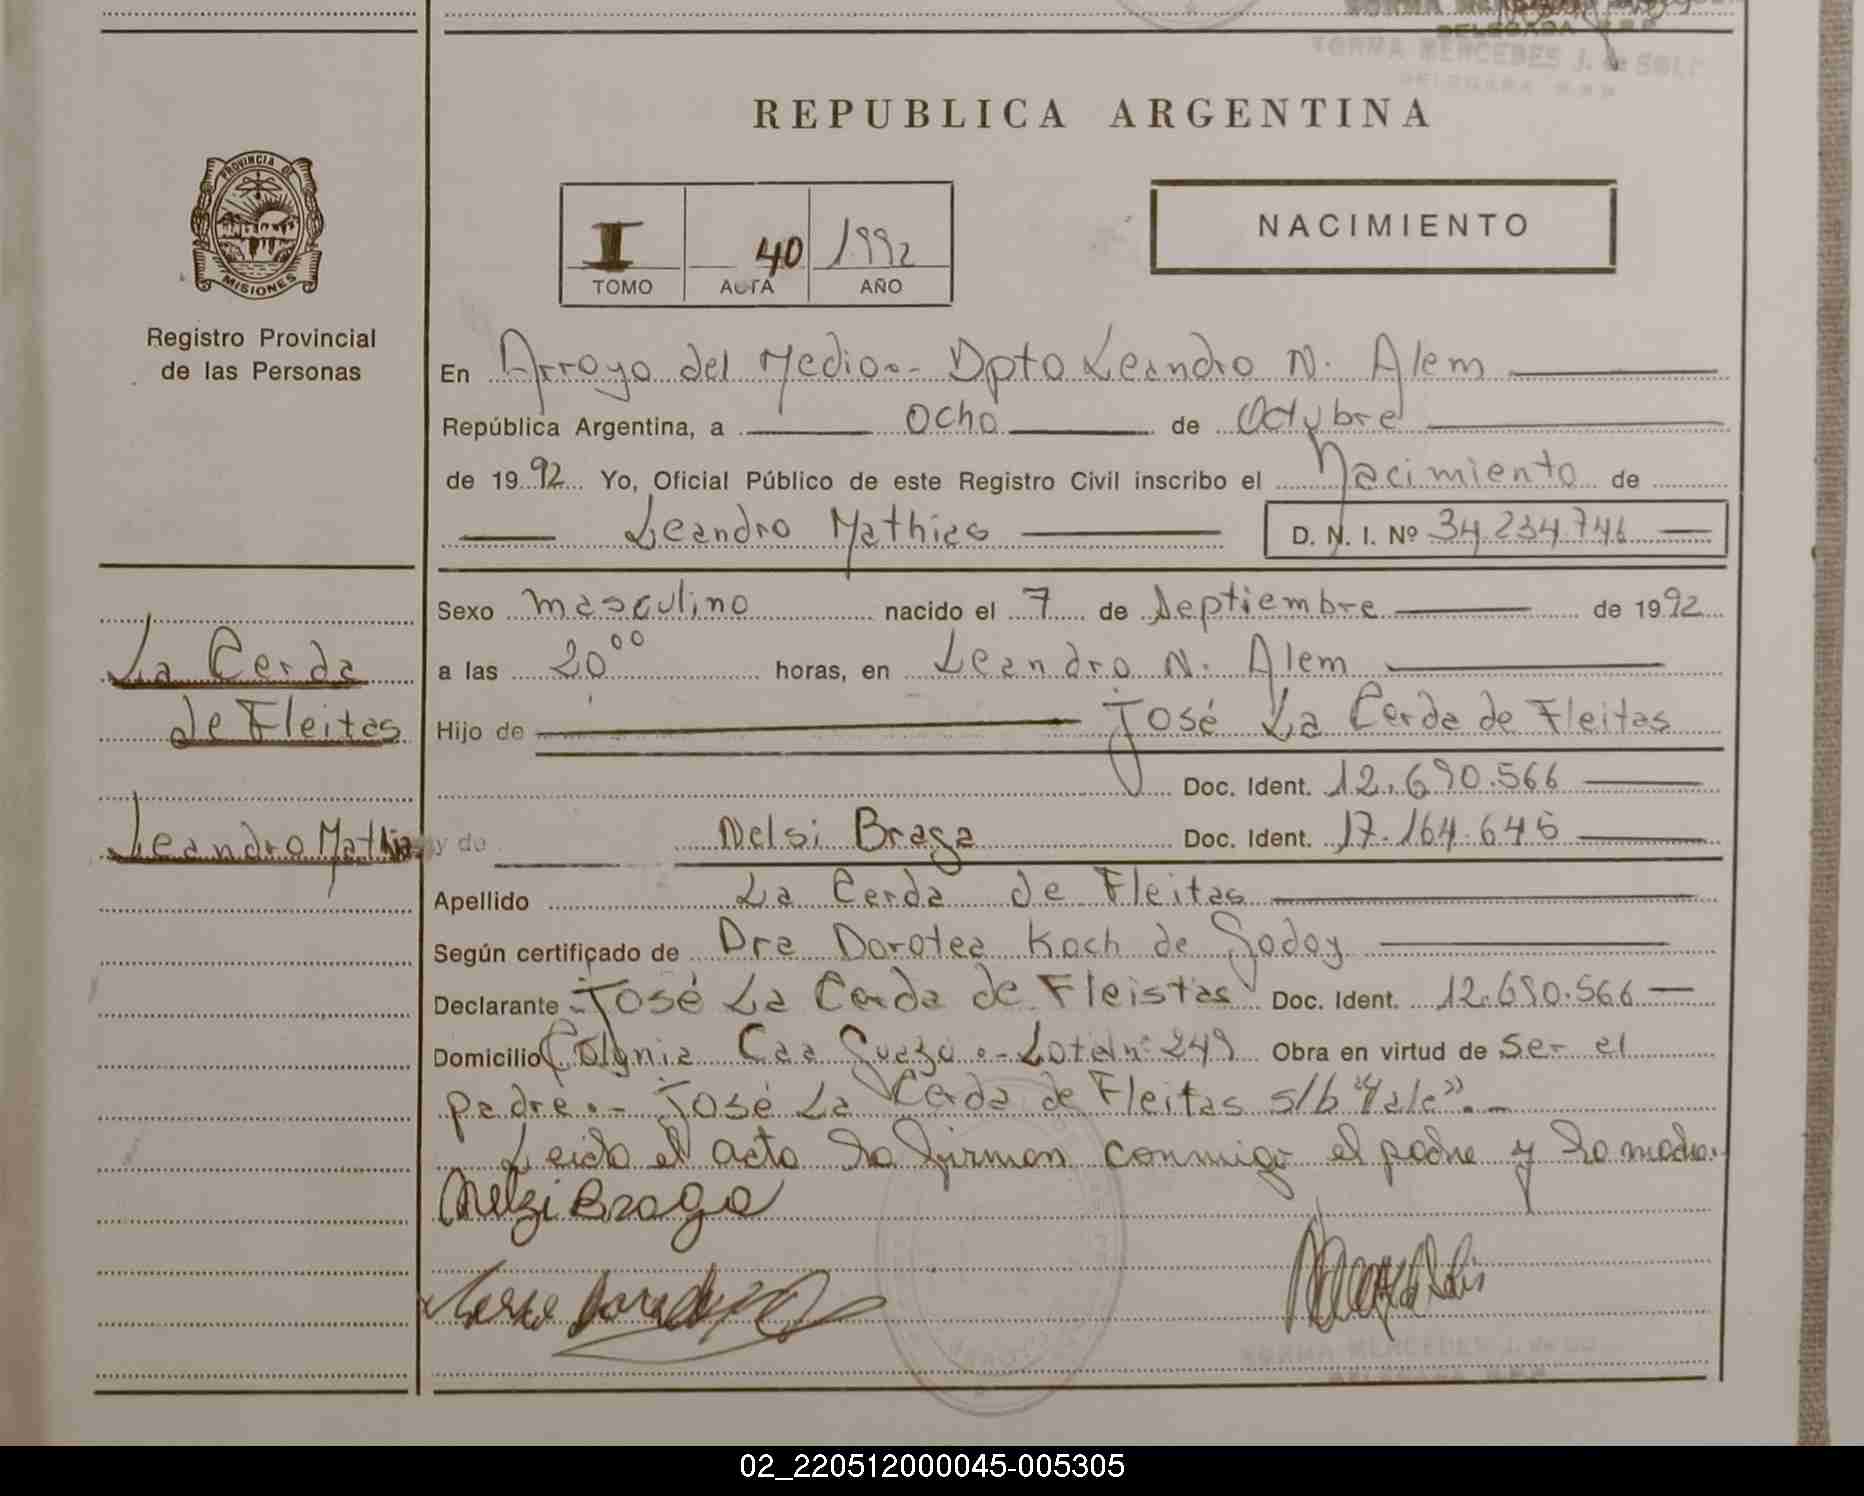 NORMA MERCEDES J. de SOLI
DELEGADA R.P.P
REPUBLICA ARGENTINA
PROVINCIA DE
MISIONES
Registro Provincial
de las Personas
I 40 1992
TOMO ACTA AÑO
NACIMIENTO
En Arroyo del Medio.- Dpto Leandro N. Alem
República Argentina, a Ocho de Octubre
de 1992 Yo, Oficial Público de este Registro Civil inscribo el Nacimiento de
Leandro Mathias D. N. I. Nº 34.234.746
Sexo masculino nacido el 7 de Septiembre de 1992
La Cerda
a las 20⁰⁰ horas, en Leandro N. Alem
de Fleitas
Hijo de José La Cerda de Fleitas
Doc. Ident. 12.690.566
Leandro Mathias
y de Nelsi Braga Doc. Ident. 17.164.645
Apellido La Cerda de Fleitas
Según certificado de Dra Dorotea Koch de Godoy
Declarante José La Cerda de Fleistas Doc. Ident. 12.690.566
Domicilio Colonia Caa Guazú.- Lote nº 249 Obra en virtud de ser el
padre.- José La Cerda de Fleitas s/b "Vale".-
Leido el acta la firman conmigo el padre y la madre.
Nelzi Braga
NORMA MERCEDES J. de SO
DELEGADA R.P.P
02_220512000045-005305